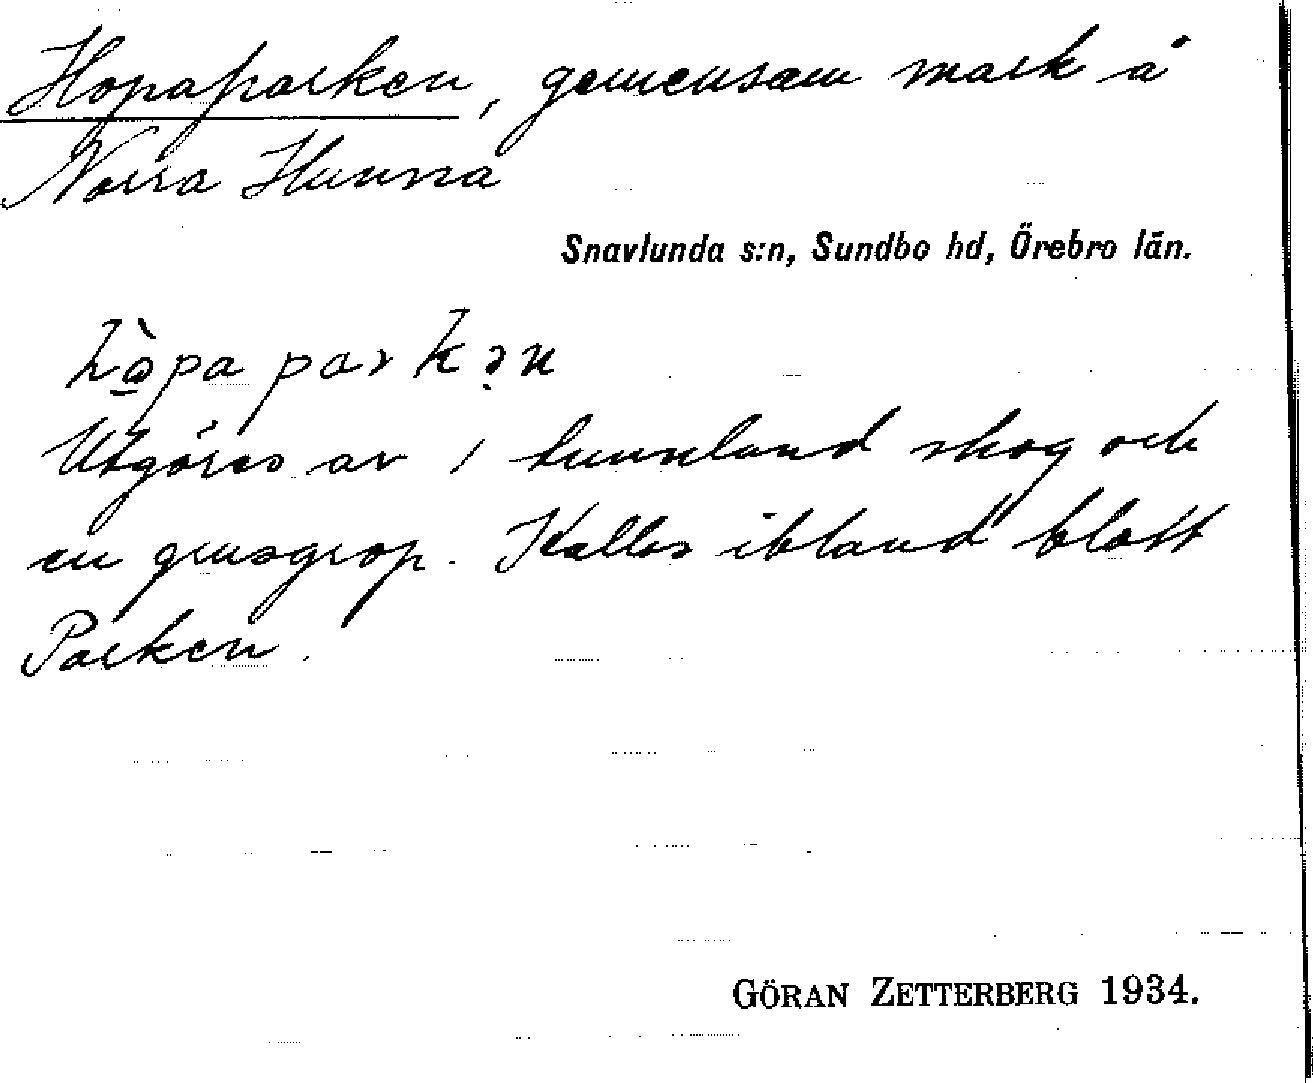 Hopaparken, gemensam mark å
Norra Hunna
Snavlunda s:n, Sundbo hd, Örebro län.
hòpa parkən
Utgöres av 1 tunnland skog och
en grusgrop. Kallas ibland blott
Parken.
GÖRAN ZETTERBERG 1934.